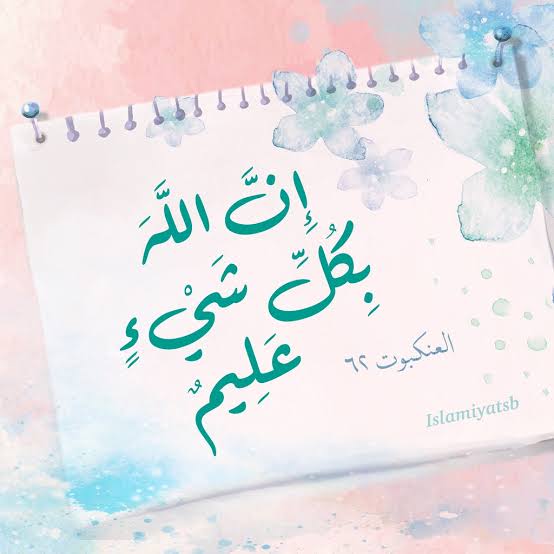 إِنَّ اللَّهَ
بِكُلِّ شَيْءٍ
عَلِيمٌ
العنكبوت ٦٢
Islamiyatsb